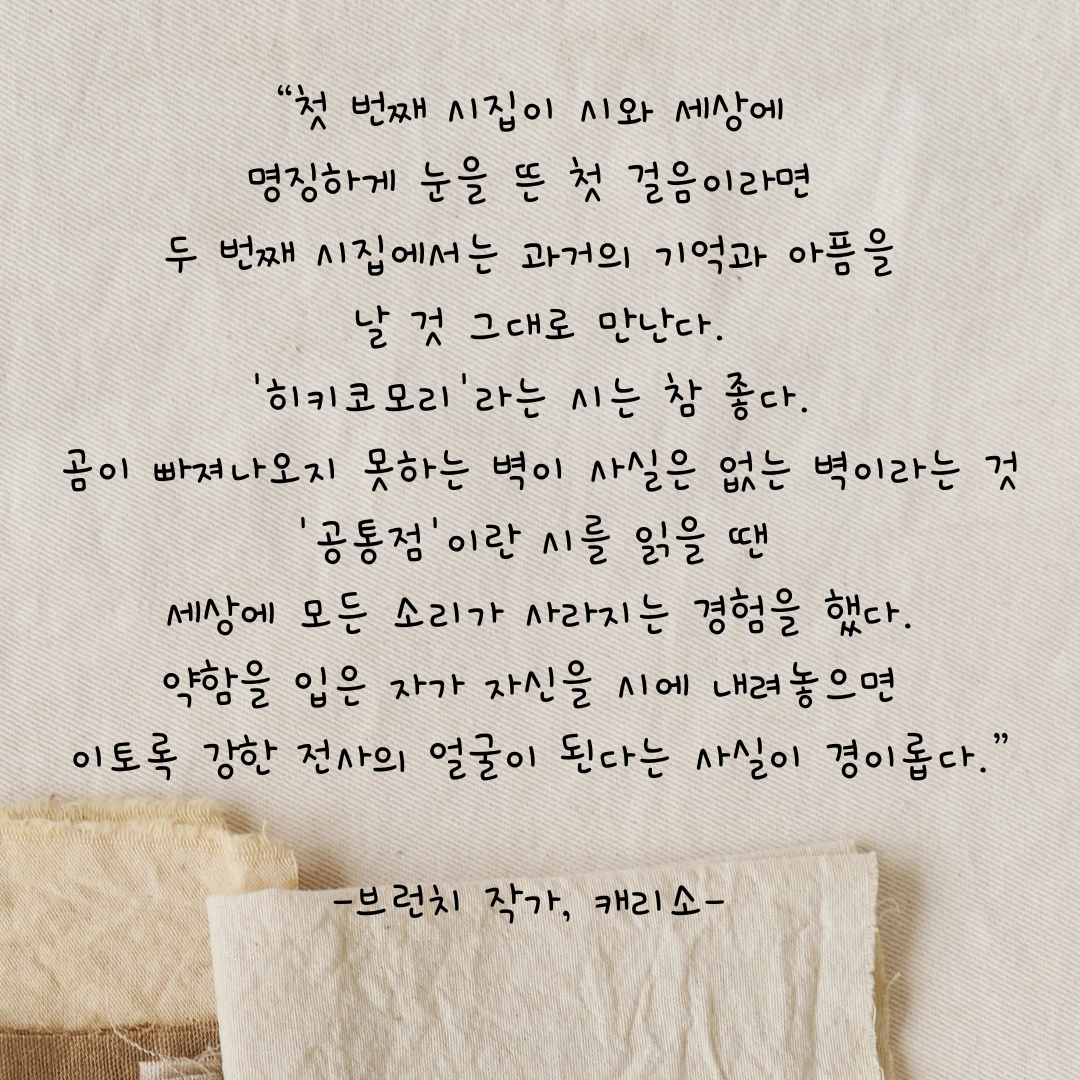 “첫 번째 시집이 시와 세상에
명징하게 눈을 뜬 첫 걸음이라면
두 번째 시집에서는 과거의 기억과 아픔을
날 것 그대로 만난다.
'히키코모리'라는 시는 참 좋다.
곰이 빠져나오지 못하는 벽이 사실은 없는 벽이라는 것
'공통점'이란 시를 읽을 땐
세상에 모든 소리가 사라지는 경험을 했다.
약함을 입은 자가 자신을 시에 내려놓으면
이토록 강한 전사의 얼굴이 된다는 사실이 경이롭다.”
-브런치 작가, 캐리소-